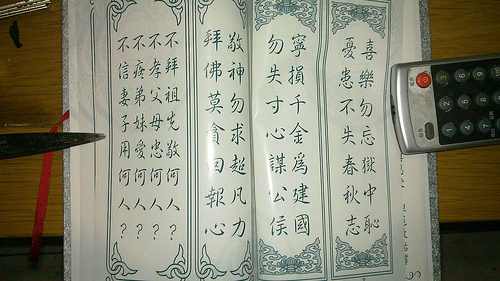 喜樂勿忘獄中恥
憂患不失春秋志
寧損千金為建國
勿失寸心謀公侯
敬神勿求超凡力
拜佛莫貪回報心
不拜祖先敬何人？
不孝父母忠何人？
不疼弟妹愛何人？
不信妻子用何人？